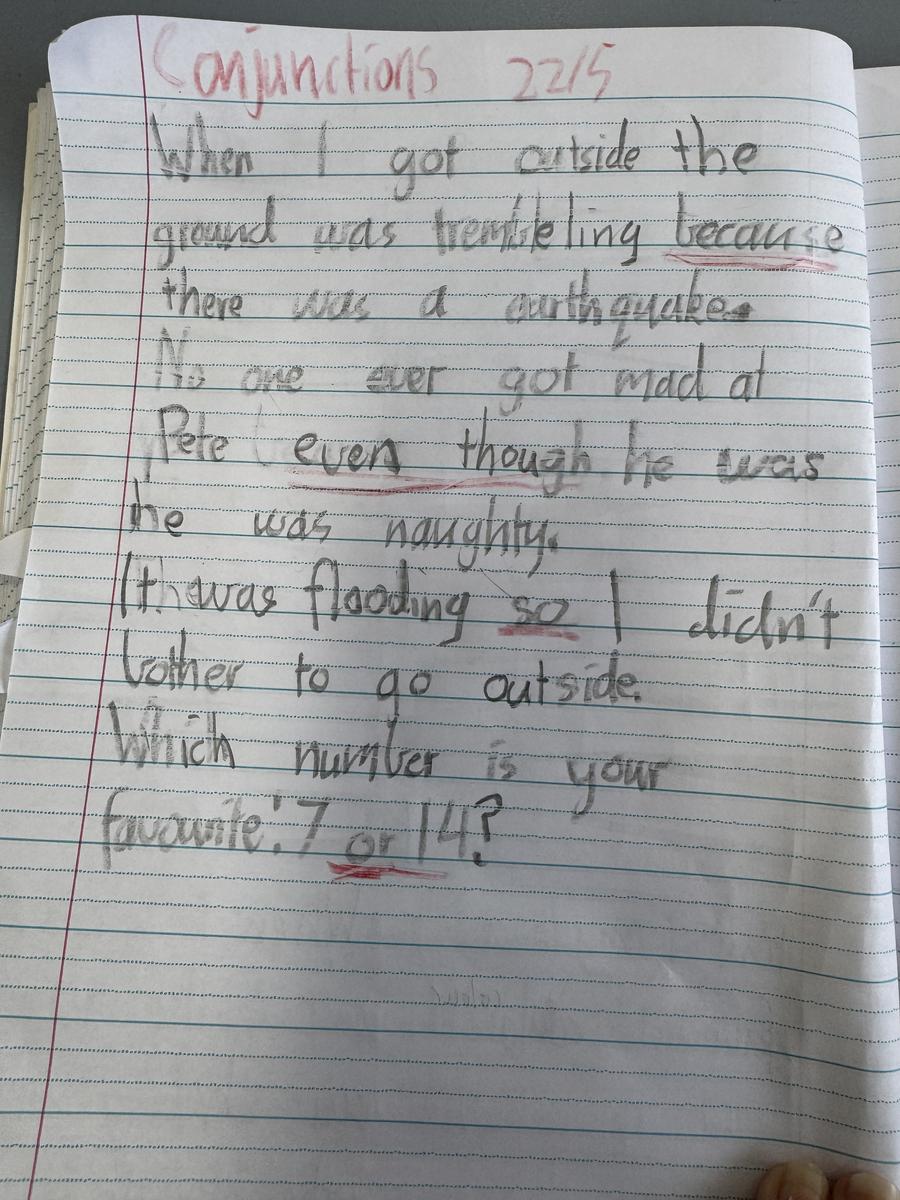 Conjunctions 22/5
When I got outside the
ground was trembleling because
there was a earthquake.
No one ever got mad at
Pete even though he was
he was naughty.
It was flooding so I didn't
bother to go outside.
Which number is your
favourite: 7 or 14?